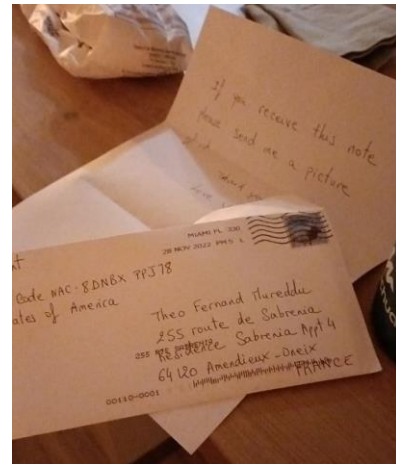 If you receive this note
please send me a picture
MIAMI FL 330
28 NOV 2022 PM 5 L
Code NAC: 8DNBX PPJ78
ates of America
Theo Fernand Mureddu
255 route de Sabrenia
Résidence Sabrenia Appt 4
64120 Amendieux-Oneix
FRANCE
00110-0001